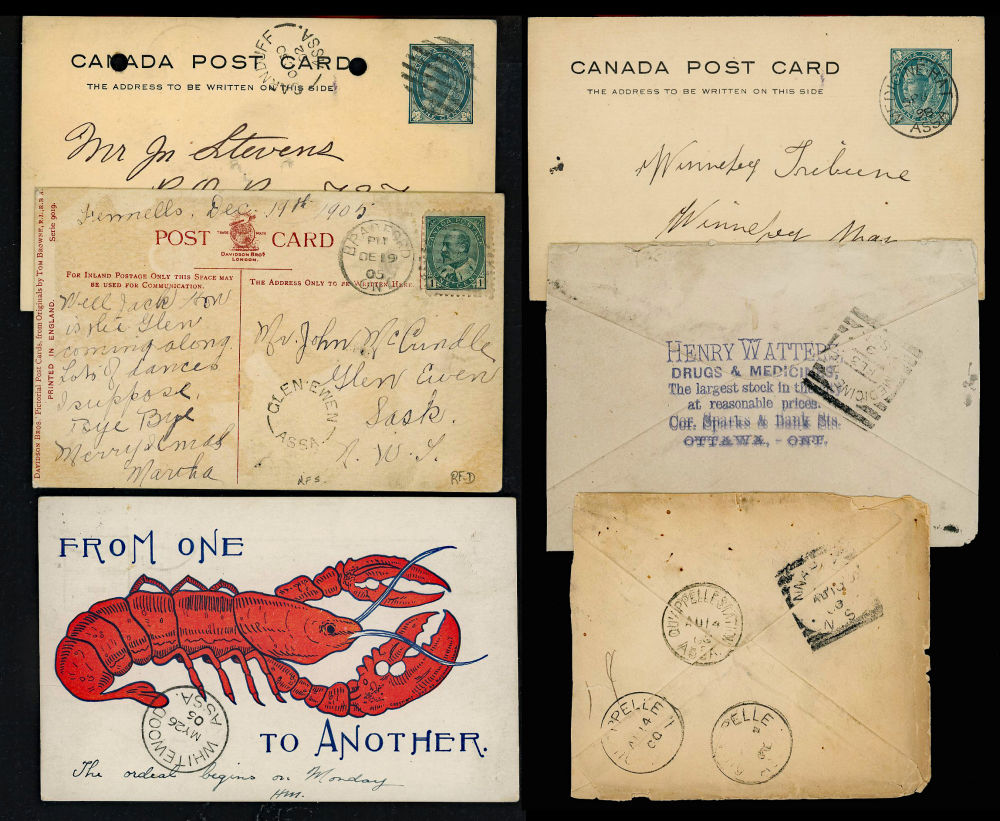 CANADA POST CARD
THE ADDRESS TO BE WRITTEN ON THIS SIDE
CARNDUFF
ASSA
Mr Jn Stevens
CANADA POST CARD
THE ADDRESS TO BE WRITTEN ON THIS SIDE
ASSA
Winnipeg Tribune
Winnipeg Man
Fennells, Dec. 19th 1905
POST CARD
TRADE MARK
DAVIDSON BROS
LONDON.
FOR INLAND POSTAGE ONLY THIS SPACE MAY
BE USED FOR COMMUNICATION.
THE ADDRESS ONLY TO BE WRITTEN HERE.
PM
DE 19
05
N
CANADA POSTAGE
1 1
Well Jack how
is the Glen
coming along.
Lots of dances
I suppose.
Bye Bye
Merry Xmas
Martha
Mr. John McCundle
Glen Ewen
Sask.
N. W. T.
GLEN-EWEN
ASSA
RFS.
RF-D
DAVIDSON BROS.' PICTORIAL POST CARDS, FROM ORIGINALS BY TOM BROWNE, R.I., R.B.A. SERIE 9019.
PRINTED IN ENGLAND.
HENRY WATTERS
DRUGS & MEDICINES,
The largest stock in the
at reasonable prices.
Cor. Sparks & Bank Sts.
OTTAWA, - ONT.
MEDICINE
FROM ONE
TO ANOTHER.
WHITEWOOD
MY 26
05
ASSA.
The ordeal begins on Monday
HM.
QU'APPELLE STATION
AU 14
ASSA.
PPELLE
AU 14
00
PELLE